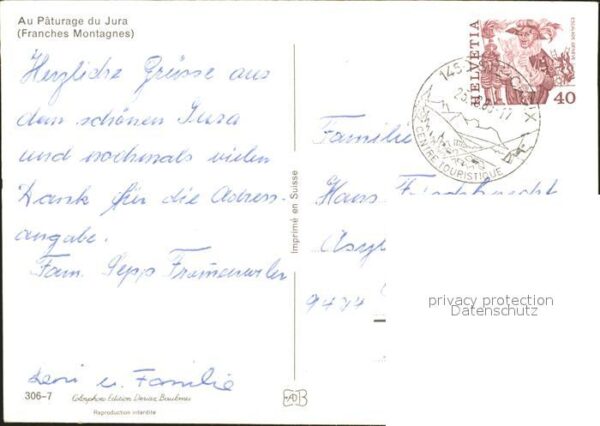 Au Pâturage du Jura
(Franches Montagnes)
Herzliche Grüsse aus
dem schönen Jura
und nochmals vielen
Dank für die Adress-
angabe.
Fam. Sepp
u. Familie
306-7
Colorphoto Edition Deriaz Baulmes
Reproduction interdite
Imprimé en Suisse
HELVETIA
40
CENTRE TOURISTIQUE
Familie
Hans
9474
privacy protection
Datenschutz